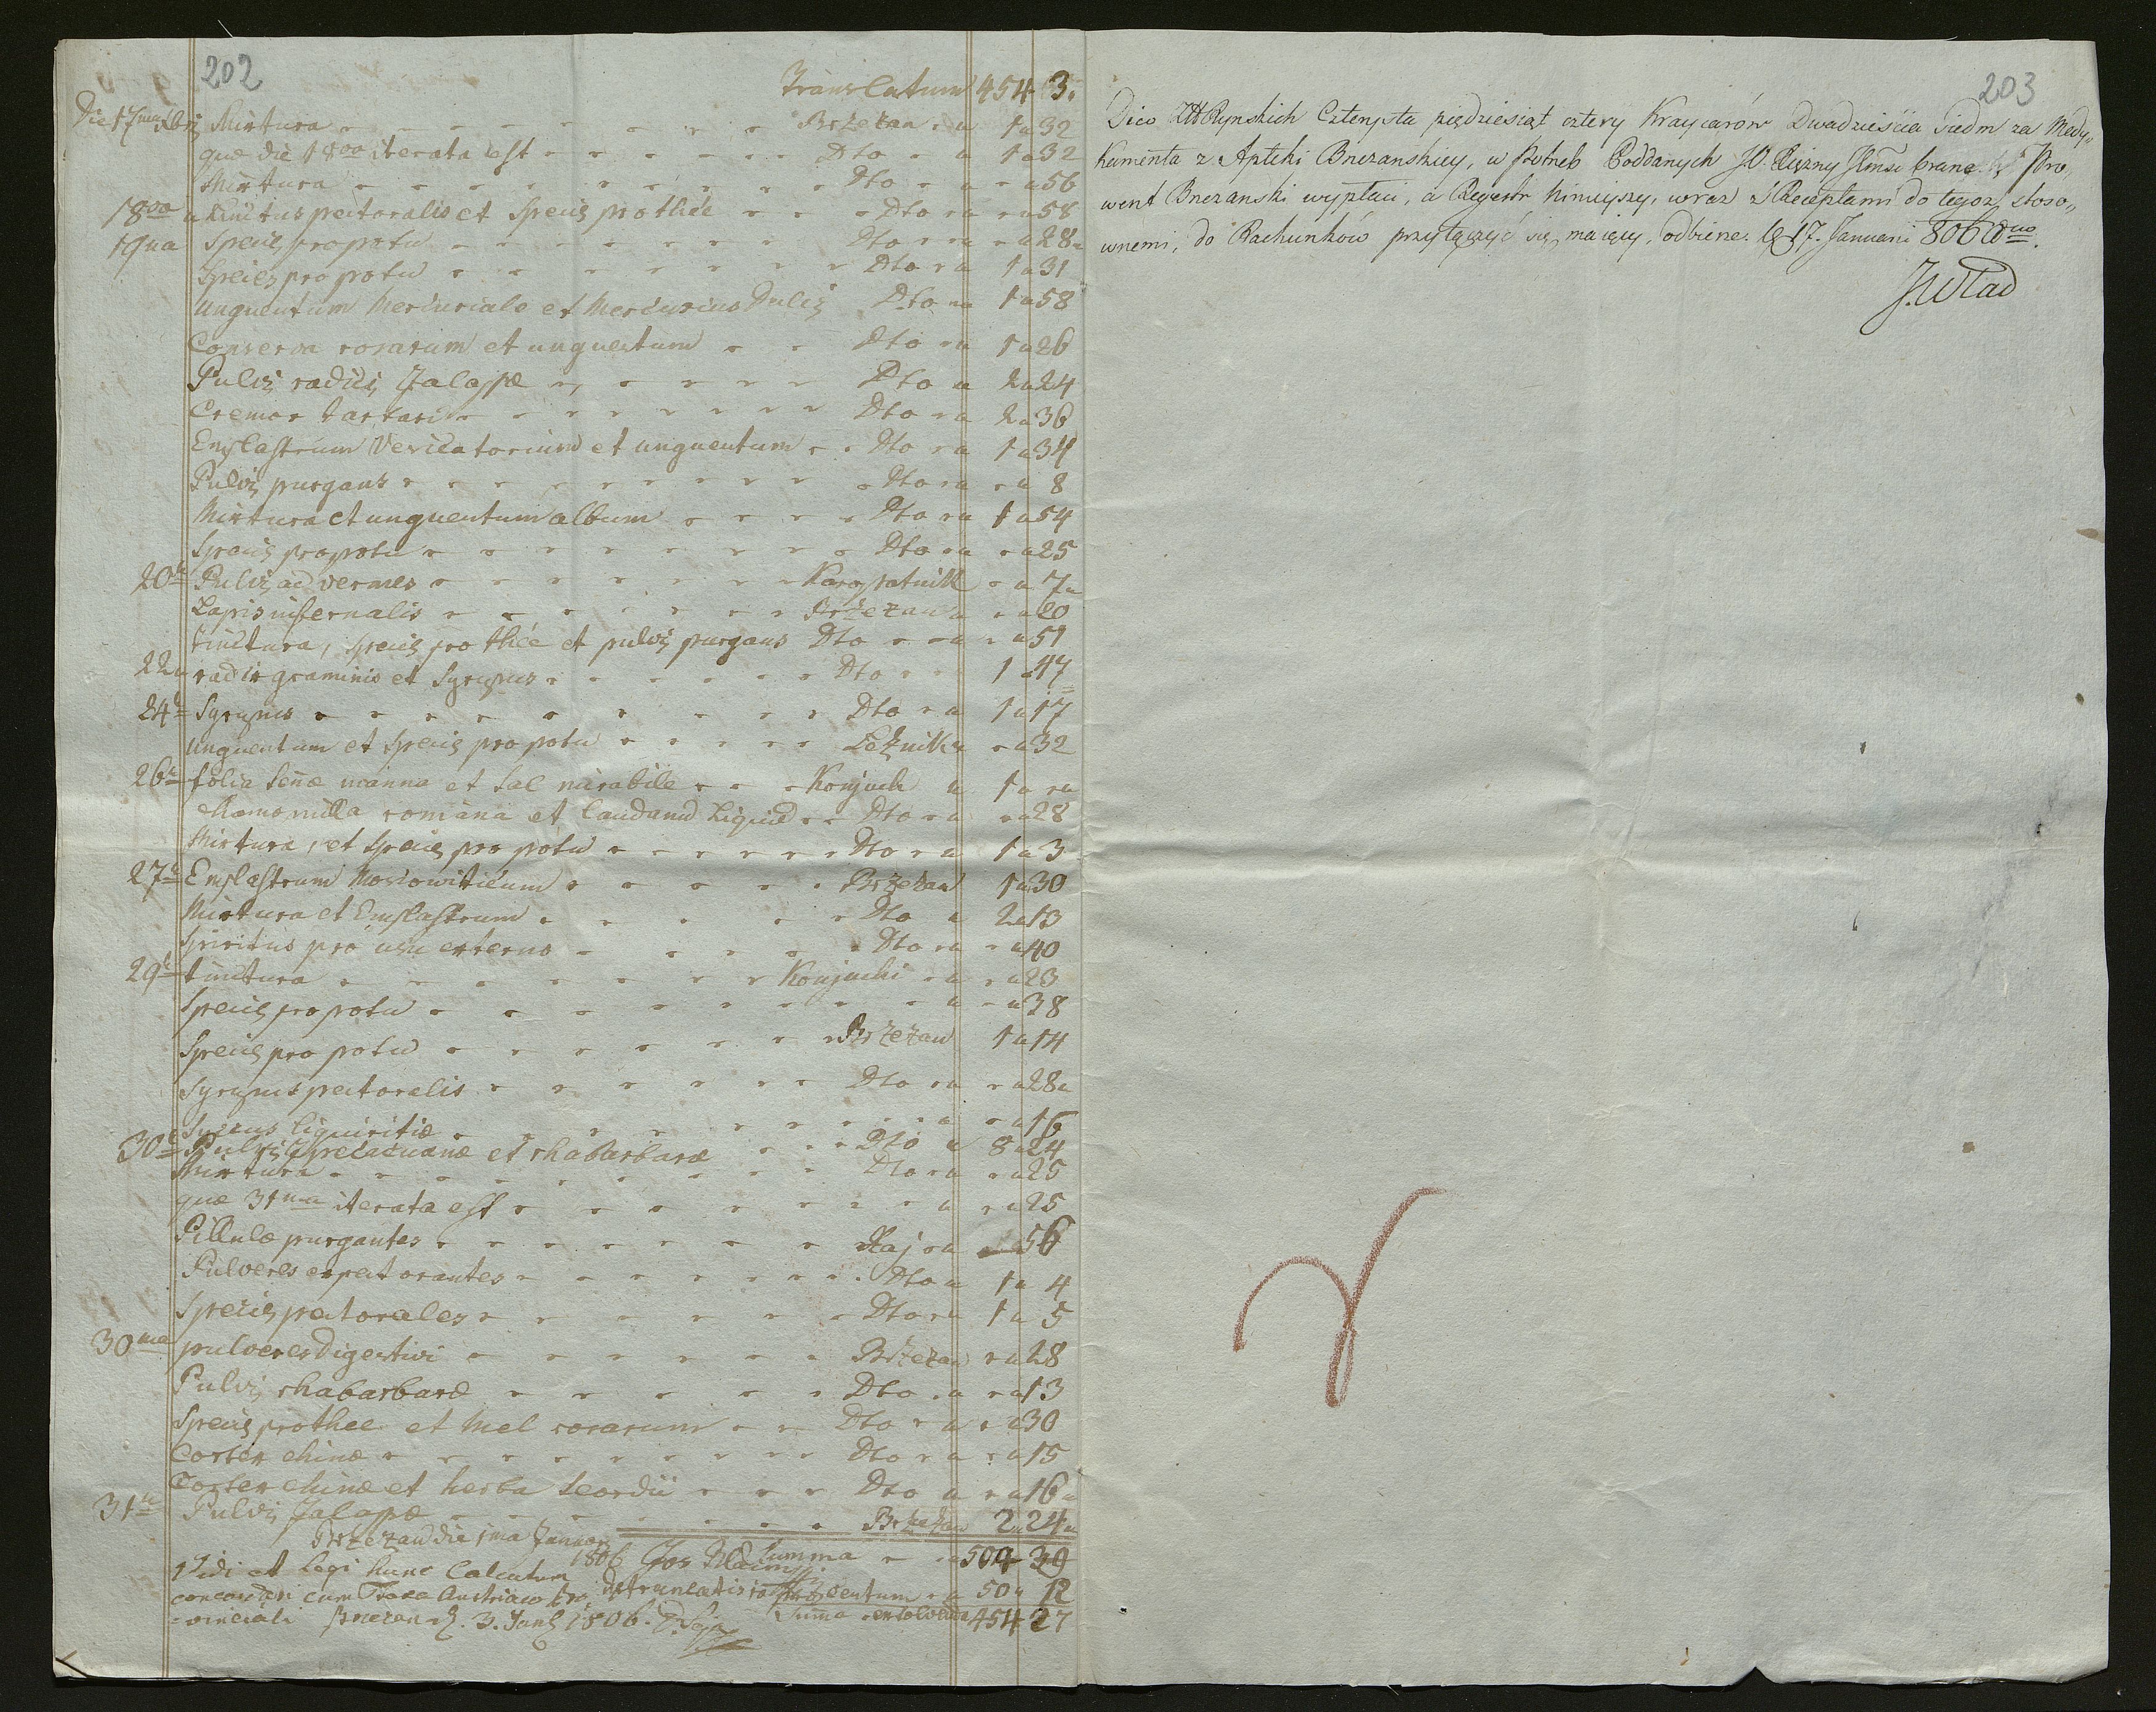 202
Translatum 454 3.
Die 17ma Xbris Mixtura Brzezan 1 32
quæ die 18va iterata est Dto 1 32
Mixtura Dto 56
18va Linctus pectoralis et Species pro thée Dto 58
19na Species pro potu Dto 28
Species pro potu Dto 1 31
Unguentum Mercuriale et Mercurius Dulcis Dto 1 58
Conserva rosarum et unguentum Dto 1 26
Pulvis radicis Jalappæ Dto 2 24
Cremor tartari Dto 2 36
Emplastrum Vesicatorium et unguentum Dto 1 34
Pulvis purgans Dto 8
Mixtura et unguentum album Dto 1 54
Species pro potu Dto 25
20 Pulvis ad vermes Kuropatnik 7
Lapis infernalis Brzezan 20
tinctura, species pro thée et pulvis purgans Dto 51
22 radix graminis et Syrupus Dto 1 47
24 Syrupus Dto 1 17
Unguentum et Species pro potu Leśnika 32
26 folia Senæ manna et Sal mirabile Konjuch 1
Chamomilla romana et Laudanum Liquid Dto 28
Mixtura, et Species pro potu Dto 1 3
27 Emplastrum Moscowiticum Brzezan 1 30
Mixtura et Emplastrum Dto 2 13
Spiritus pro usu externo Dto 40
29 tinctura Konjuchi 23
Species pro potu 38
Species pro potu Brzezan 1 14
Syrupus pectoralis Dto 28
Succus liquiritiæ 16
30 Pulvis Ipecacuanæ et rhabarbaræ Dto 8 24
Mixtura Dto 25
quæ 31ma iterata est 25
Pillulæ purgantes Raj 56
Pulveres expectorantes Dto 1 4
Species pectorales Dto 1 5
30ma pulveres Digestivi Brzezan 28
Pulvis rhabarbaræ Dto 13
Species pro thee et Mel rosarum Dto 30
Cortex chinæ Dto 15
Cortex chinæ et herba Scordii Dto 16
31 Pulvis Jalapæ Brzezan 2 24
Brzezan die 1ma Januar 1806 Jos Summa 504 39
Vidi et Legi hunc Calculum
concordari cum Taxa Austriaco pro detruncatis 10 pro centum 50 12
vinciali Brzezan d. 3. Janr 1806. Suma exsolvenda 454 27
203
Dico ZłRynskich Czterysta pięćdziesiąt cztery Kraycarów Dwadzieścia siedm za Medy„
kamenta z Apteki Brzezanskiey, w potrzeb Poddanych JO. Xiężny Jmsci brane. Pro„
went Brzezanski wypłaci, a Regestr ninieyszy, wraz z Receptami do tegoż stoso„
wnemi, do Rachunków przyłączyć się maiący, odbierze. d 17. Januarii 806
J. Wlad